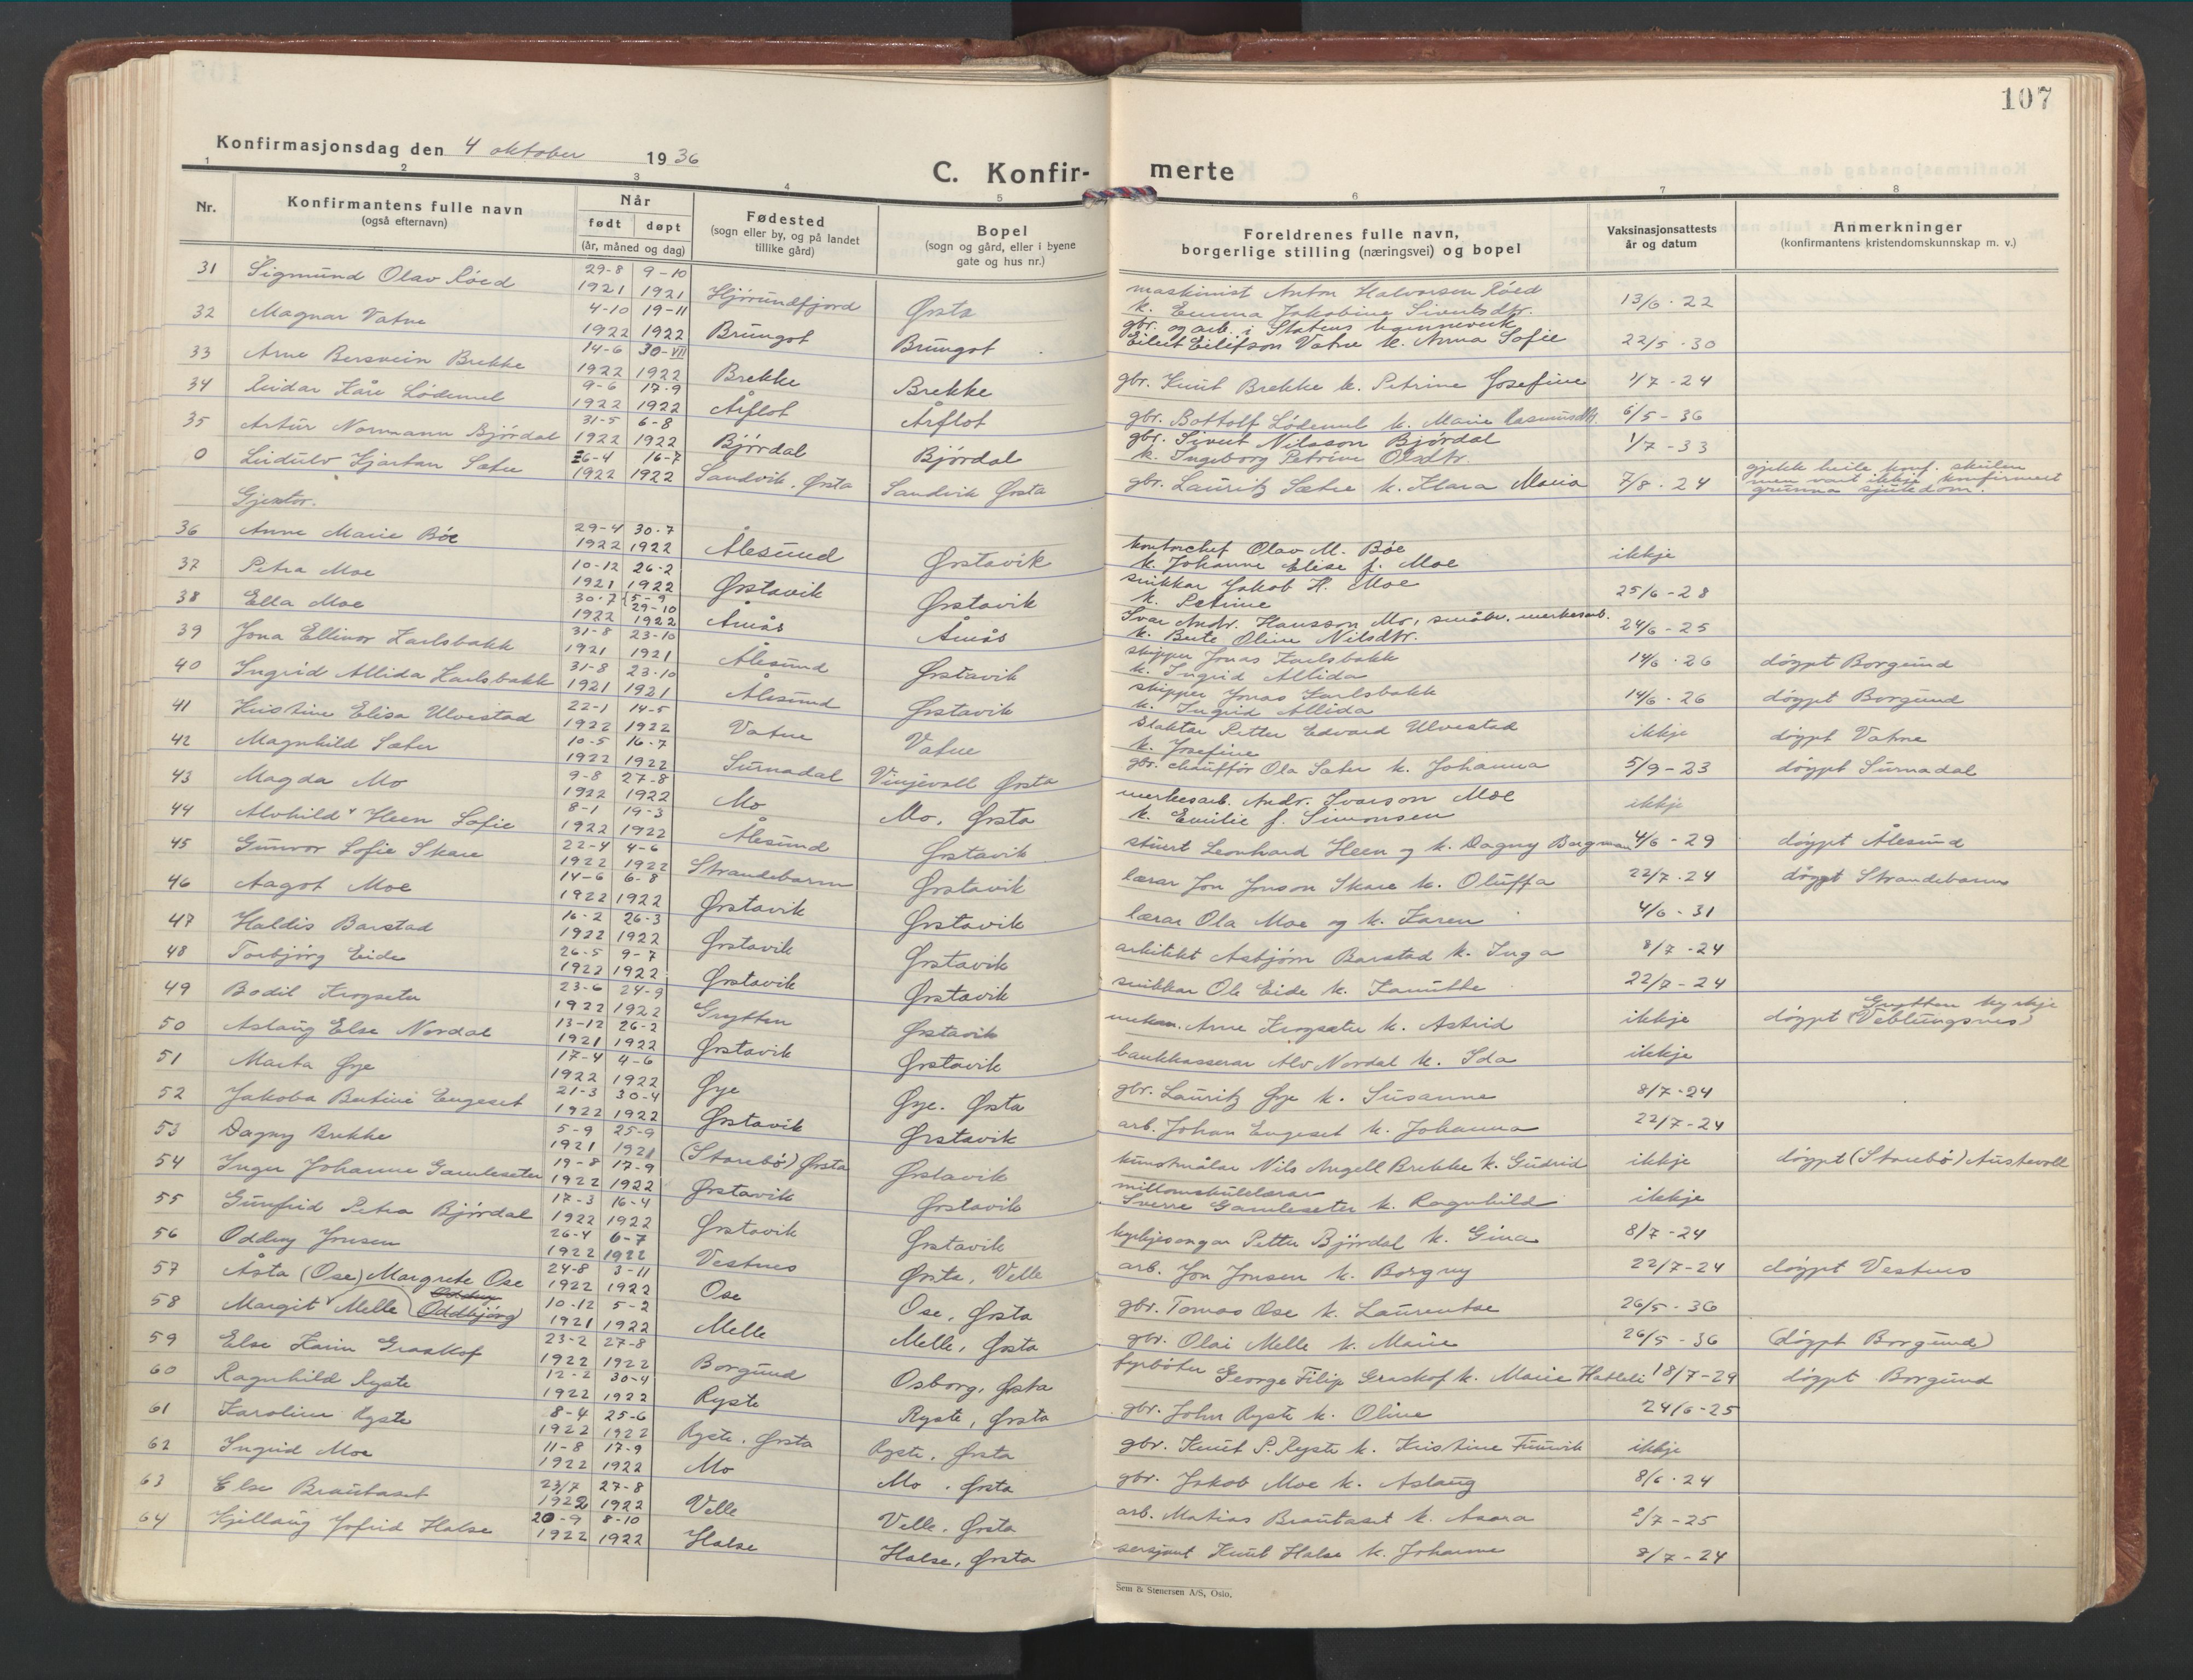 107
Konfirmasjonsdag den 4 oktober 1936
C. Konfir- merte
1 2 3 4 5 6 7 8
Nr. Konfirmantens fulle navn (også efternavn) Når født døpt (år, måned og dag) Fødested (sogn eller by, og på landet tillike gård) Bopel (sogn og gård, eller i byene gate og hus nr.) Foreldrenes fulle navn, borgerlige stilling (næringsvei) og bopel Vaksinasjonsattests år og datum Anmerkninger (konfirmantens kristendomskunnskap m. v.)
31 Sigmund Olav Róed 29-8 1921 9-10 1921 Hjørundfjord Ørsta maskinist Anton Halvorsen Róed k. Emma Jakobine Sivertsdtr. 13/6 - 22
32 Magnar Vatne 4-10 1922 19-11 1922 Brungot Brungot gbr. og arb. i Statens Eilert Eilifson Vatne k. Anna Sofie 22/5 - 30
33 Arne Bersvein Brekke 14-6 1922 30-VII 1922 Brekke Brekke gbr. Knut Brekke k. Petrine Josefine 1/7 - 24
34 Reidar Kåre Lødemel 9-6 1922 17-9 1922 Årflot Årflot gbr. Bottolf Lødemel k. Marie Rasmusdtr. 6/5 - 36
35 Artur Normann Bjørdal 31-5 1922 6-8 1922 Bjørdal Bjørdal gbr. Sivert Nilsson Bjørdal k. Ingeborg Petrine Olsdtr. 1/7 - 33
0 Leidulv Kjartan Sætre 26-4 1922 16-7 1922 Sandvik, Ørsta Sandvik Ørsta gbr. Lauritz Sætre k. Klara Maria 7/8 - 24 gjekk heile konf. skulen men vart ikkje konfirmert grunna sjukedom.
Gjentor.
36 Anne Marie Bøe 29-4 1922 30-7 1922 Ålesund Ørstavik kontorchef Olav M. Bøe k. Johanne Elise f. Moe ikkje
37 Petra Moe 10-12 1921 26-2 1922 Ørstavik Ørstavik snikkar Jakob H. Moe k. Petrine 25/6 - 28
38 Ella Moe 30-7 1922 5-9 29-10 1922 Åmås Åmås Ivar Andr. Hansson Mo, småbr. merkesarb. k. Berte Oline Nilsdtr. 24/6 - 25
39 Jona Ellinor Karlsbakk 31-8 1921 23-10 1921 Ålesund Ørstavik skipper Jonas Karlsbakk k. Ingrid Allida 14/6 - 26 døypt Borgund
40 Ingrid Allida Karlsbakk 31-8 1921 23-10 1921 Ålesund Ørstavik skipper Jonas Karlsbakk k. Ingrid Allida 14/6 - 26 døypt Borgund
41 Kristine Elisa Ulvestad 22-1 1922 14-5 1922 Vatne Vatne Slaktar Petter Edvard Ulvestad k. Josefine ikkje døypt Vatne
42 Magnhild Sæter 10-5 1922 16-7 1922 Surnadal Vinjevoll Ørsta gbr. chauffør Ola Sæter k. Johanna 5/9 - 23 døypt Surnadal
43 Magda Mo 9-8 1922 27-8 1922 Mo Mo, Ørsta merkesarb. Andr. Ivarson Moe k. Emilie f. Simonsen ikkje
44 Alvhild Heen Sofie 8-1 1922 19-3 1922 Ålesund Ørstavik stuert Leonhard Heen og k. Dagny Bergman 4/6 - 29 døypt Ålesund
45 Gunvor Sofie Skare 22-4 1922 4-6 1922 Strandebarm Ørstavik lærar Jon Jonson Skare k. Oluffa 22/7 - 24 døypt Strandebarm
46 Aagot Moe 14-6 1922 6-8 1922 Ørstavik Ørstavik lærar Ola Moe og k. Karen 4/6 - 31
47 Haldis Barstad 16-2 1922 26-3 1922 Ørstavik Ørstavik arkitekt Asbjørn Barstad k. Inga 8/7 - 24
48 Torbjørg Eide 26-5 1922 9-7 1922 Ørstavik Ørstavik snikkar Ole Eide k. Kanutte 22/7 - 24
49 Bodil Krogsæter 23-6 1922 24-9 1922 Grytten Ørstavik mekan. Arne Krogsæter k. Astrid ikkje døypt Grytten kyrkje (Veblungsnes)
50 Aslaug Else Nordal 13-12 1921 26-2 1922 Ørstavik Ørstavik bankkasserar Alv Nordal k. Ida ikkje
51 Marta Øye 17-4 1922 4-6 1922 Øye Øye, Ørsta gbr. Lauritz Øye k. Susanne 8/7 - 24
52 Jakoba Bertine Engeset 21-3 1922 30-4 1922 Ørstavik Ørstavik arb. Johan Engeset k. Johanna 22/7 - 24
53 Dagny Brekke 5-9 1921 25-9 1921 (Storebø) Ørsta Ørstavik kunstmålar Nils Angell Brekke k. Gudrid ikkje døypt (Storebø) Austevoll
54 Inger Johanne Gamlesæter 19-8 1922 17-9 1922 Ørstavik Ørstavik millomskulelærar Sverre Gamlesæter k. Ragnhild ikkje
55 Gunfrid Petra Bjørdal 17-3 1922 16-4 1922 Ørstavik Ørstavik kyrkjesongar Petter Bjørdal k. Gina 8/7 - 24
56 Oddny Jonsen 26-4 1922 6-7 1922 Vestnes Ørsta, Velle arb. Jon Jonsen k. Borgny 22/7 - 24 døypt Vestnes
57 Åsta (Ose) Margrete Ose 24-8 1922 3-11 1922 Ose Ose, Ørsta gbr. Tomas Ose k. Laurentse 26/5 - 36
58 Margit Melle (Oddny Oddbjørg) 10-12 1921 5-2 1922 Melle Melle, Ørsta gbr. Olai Melle k. Marie 26/5 - 36 (døypt Borgund)
59 Else Karin Graskof 23-2 1922 27-8 1922 Borgund Osborg, Ørsta fyrbøter George Filip Graskof k. Marie Hatleli 18/7 - 29 døypt Borgund
60 Ragnhild Ryste 12-2 1922 30-4 1922 Ryste Ryste, Ørsta gbr. John Ryste k. Oline 24/6 - 25
61 Karoline Ryste 8-4 1922 25-6 1922 Ryste, Ørsta Ryste, Ørsta gbr. Knut P. Ryste k. Kristine ikkje
62 Ingrid Moe 11-8 1922 17-9 1922 Mo Mo, Ørsta gbr. Jakob Moe k. Aslaug 8/6 - 24
63 Else Brautaset 23/7 1922 27-8 1922 Velle Velle, Ørsta arb. Matias Brautaset k. Asora 2/7 - 25
64 Kjellaug Jofrid Halse 20-9 1922 8-10 1922 Halse Halse, Ørsta sersjant Knut Halse k. Johanne 8/7 - 24
Sem & Stenersen A/S, Oslo.